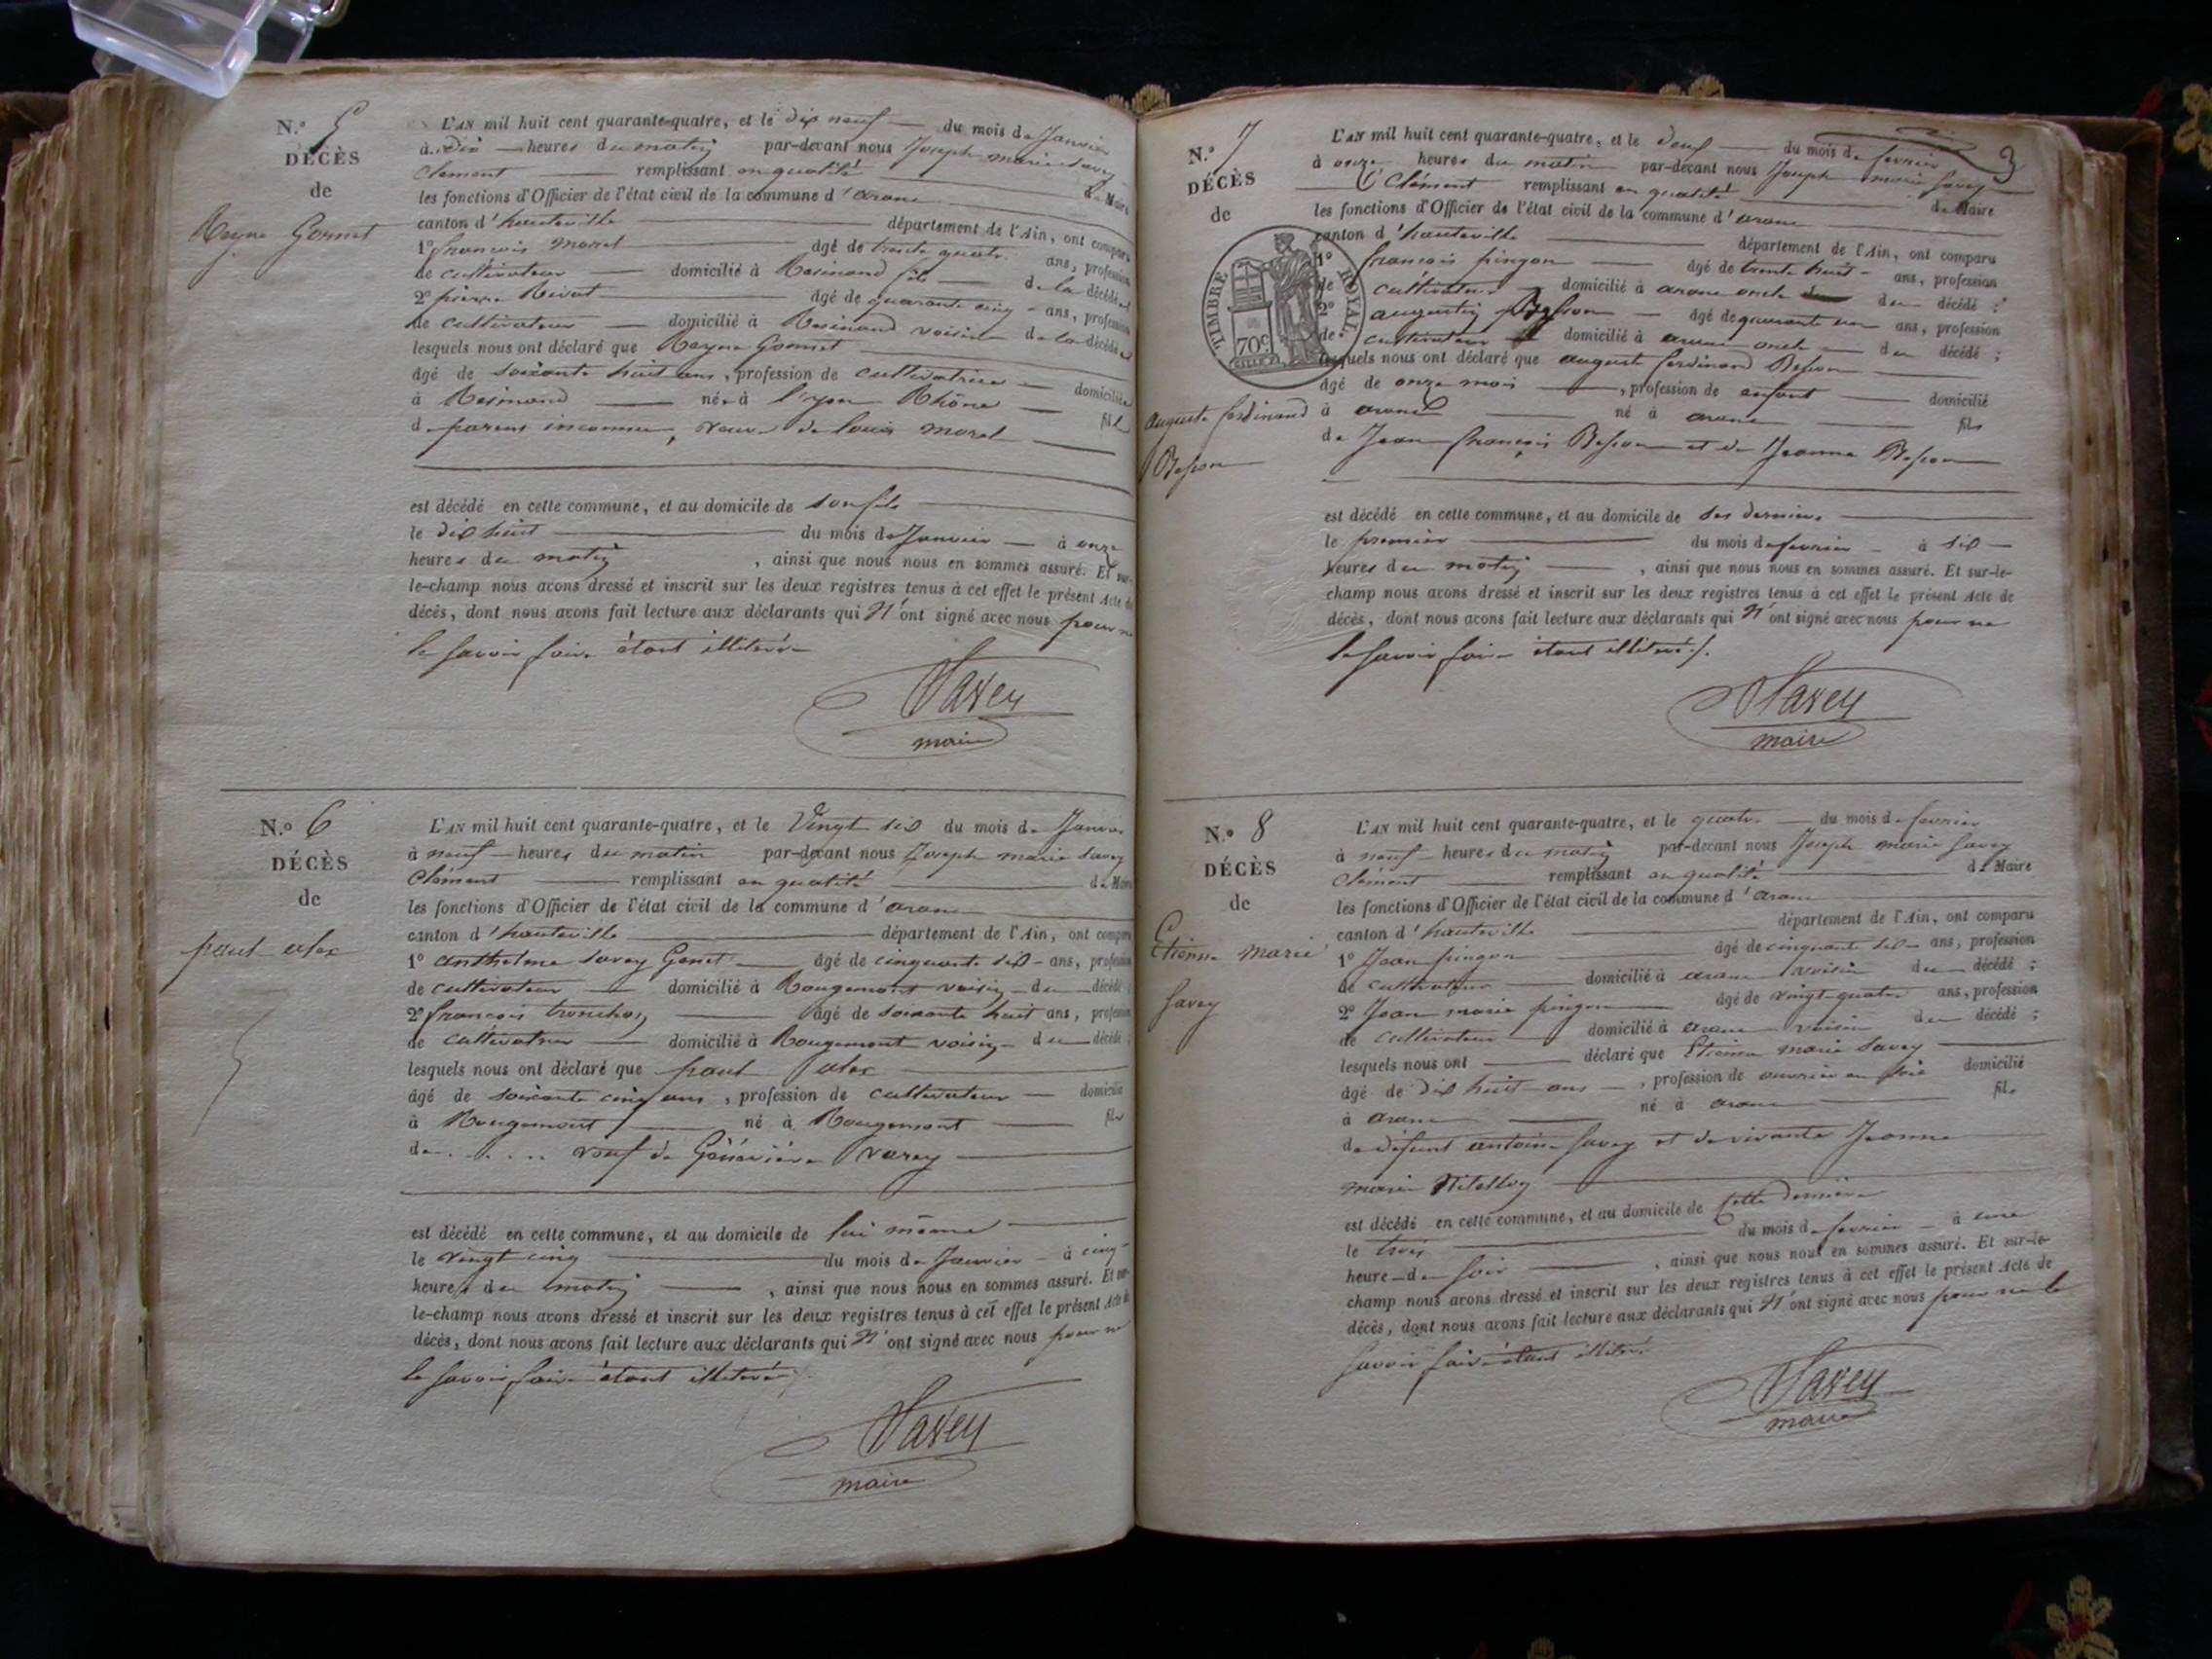 N.° 5
DÉCÈS
de
Reyne Gonnet
L'AN mil huit cent quarante-quatre, et le dix neuf du mois de Janvier
à dix heures du matin par-devant nous Joseph marie Savey
Clement remplissant en qualité de Maire
les fonctions d'Officier de l'état civil de la commune d'aranc
canton d'hauteville département de l'Ain, ont comparu
1° françois morel âgé de trente quatre ans, profession
de cultivateur domicilié à Resinand fils de la décédée
2° pierre Rivat âgé de quarante cinq ans, profession
de cultivateur domicilié à Resinand voisin de la décédée
lesquels nous ont déclaré que Reyne Gonnet
âgé de soixante huit ans, profession de cultivatrice domiciliée
à Resinand née à Lyon Rhône fille
de parens inconnus, veuve de louis morel
est décédé en cette commune, et au domicile de son fils
le dix huit du mois de Janvier à onze
heures du matin, ainsi que nous nous en sommes assuré. Et sur-
le-champ nous avons dressé et inscrit sur les deux registres tenus à cet effet le présent Acte de
décès, dont nous avons fait lecture aux déclarants qui n'ont signé avec nous pour ne
le savoir faire étant illiterés
Savey
maire
N.° 6
DÉCÈS
de
paul alex
L'AN mil huit cent quarante-quatre, et le Vingt six du mois de Janvier
à neuf heures du matin par-devant nous Joseph marie Savey
Clément remplissant en qualité de Maire
les fonctions d'Officier de l'état civil de la commune d'aranc
canton d'hauteville département de l'Ain, ont comparu
1° anthelme savey Genet âgé de cinquante six ans, profession
de cultivateur domicilié à Rougemont voisin du décédé
2° françois tronchon âgé de soixante huit ans, profession
de cultivateur domicilié à Rougemont voisin du décédé
lesquels nous ont déclaré que paul alex
âgé de soixante cinq ans, profession de cultivateur domicilié
à Rougemont né à Rougemont fils
de . . . . . veuf de Généviève Varey
est décédé en cette commune, et au domicile de lui même
le vingt cinq du mois de Janvier à cinq
heures du matin, ainsi que nous nous en sommes assuré. Et sur-
le-champ nous avons dressé et inscrit sur les deux registres tenus à cet effet le présent Acte de
décès, dont nous avons fait lecture aux déclarants qui n'ont signé avec nous pour ne
le savoir faire étant illiterés
Savey
maire
3
N.° 7
DÉCÈS
de
TIMBRE ROYAL
70c
auguste ferdinand
Besson
L'AN mil huit cent quarante-quatre, et le deux du mois de fevrier
à onze heures du matin par-devant nous Joseph marie Savey
Clément remplissant en qualité de Maire
les fonctions d'Officier de l'état civil de la commune d'aranc
canton d'hauteville département de l'Ain, ont comparu
1° françois pingon âgé de trente huit ans, profession
de cultivateur domicilié à aranc oncle du décédé ;
2° augustin Besson âgé de quarante un ans, profession
de cultivateur domicilié à aranc oncle du décédé ;
lesquels nous ont déclaré que auguste ferdinand Besson
âgé de onze mois, profession de enfant domicilié
à aranc né à aranc fils
de Jean françois Besson et de Jeanne Besson
est décédé en cette commune, et au domicile de ses derniers
le premier du mois de fevrier à six
heures du matin, ainsi que nous nous en sommes assuré. Et sur-le-
champ nous avons dressé et inscrit sur les deux registres tenus à cet effet le présent Acte de
décès, dont nous avons fait lecture aux déclarants qui n'ont signé avec nous pour ne
le savoir faire étant illiterés.
Savey
maire
N.° 8
DÉCÈS
de
Etienne marie
Savey
L'AN mil huit cent quarante-quatre, et le quatre du mois de fevrier
à neuf heures du matin par-devant nous Joseph marie Savey
Clément remplissant en qualité de Maire
les fonctions d'Officier de l'état civil de la commune d'aranc
canton d'hauteville département de l'Ain, ont comparu
1° Jean pingon âgé de cinquante six ans, profession
de cultivateur domicilié à aranc voisin du décédé ;
2° Jean marie pingon âgé de vingt-quatre ans, profession
de cultivateur domicilié à aranc voisin du décédé ;
lesquels nous ont déclaré que Etienne marie Savey
âgé de dix huit ans, profession de ouvrier en soie domicilié
à aranc né à aranc fils
de défunt antoine Savey et de vivante Jeanne
marie
est décédé en cette commune, et au domicile de Cette dernière
le trois du mois de fevrier à une
heure du soir, ainsi que nous nous en sommes assuré. Et sur-le-
champ nous avons dressé et inscrit sur les deux registres tenus à cet effet le présent Acte de
décès, dont nous avons fait lecture aux déclarants qui n'ont signé avec nous pour ne le
savoir faire étant illiterés
Savey
maire